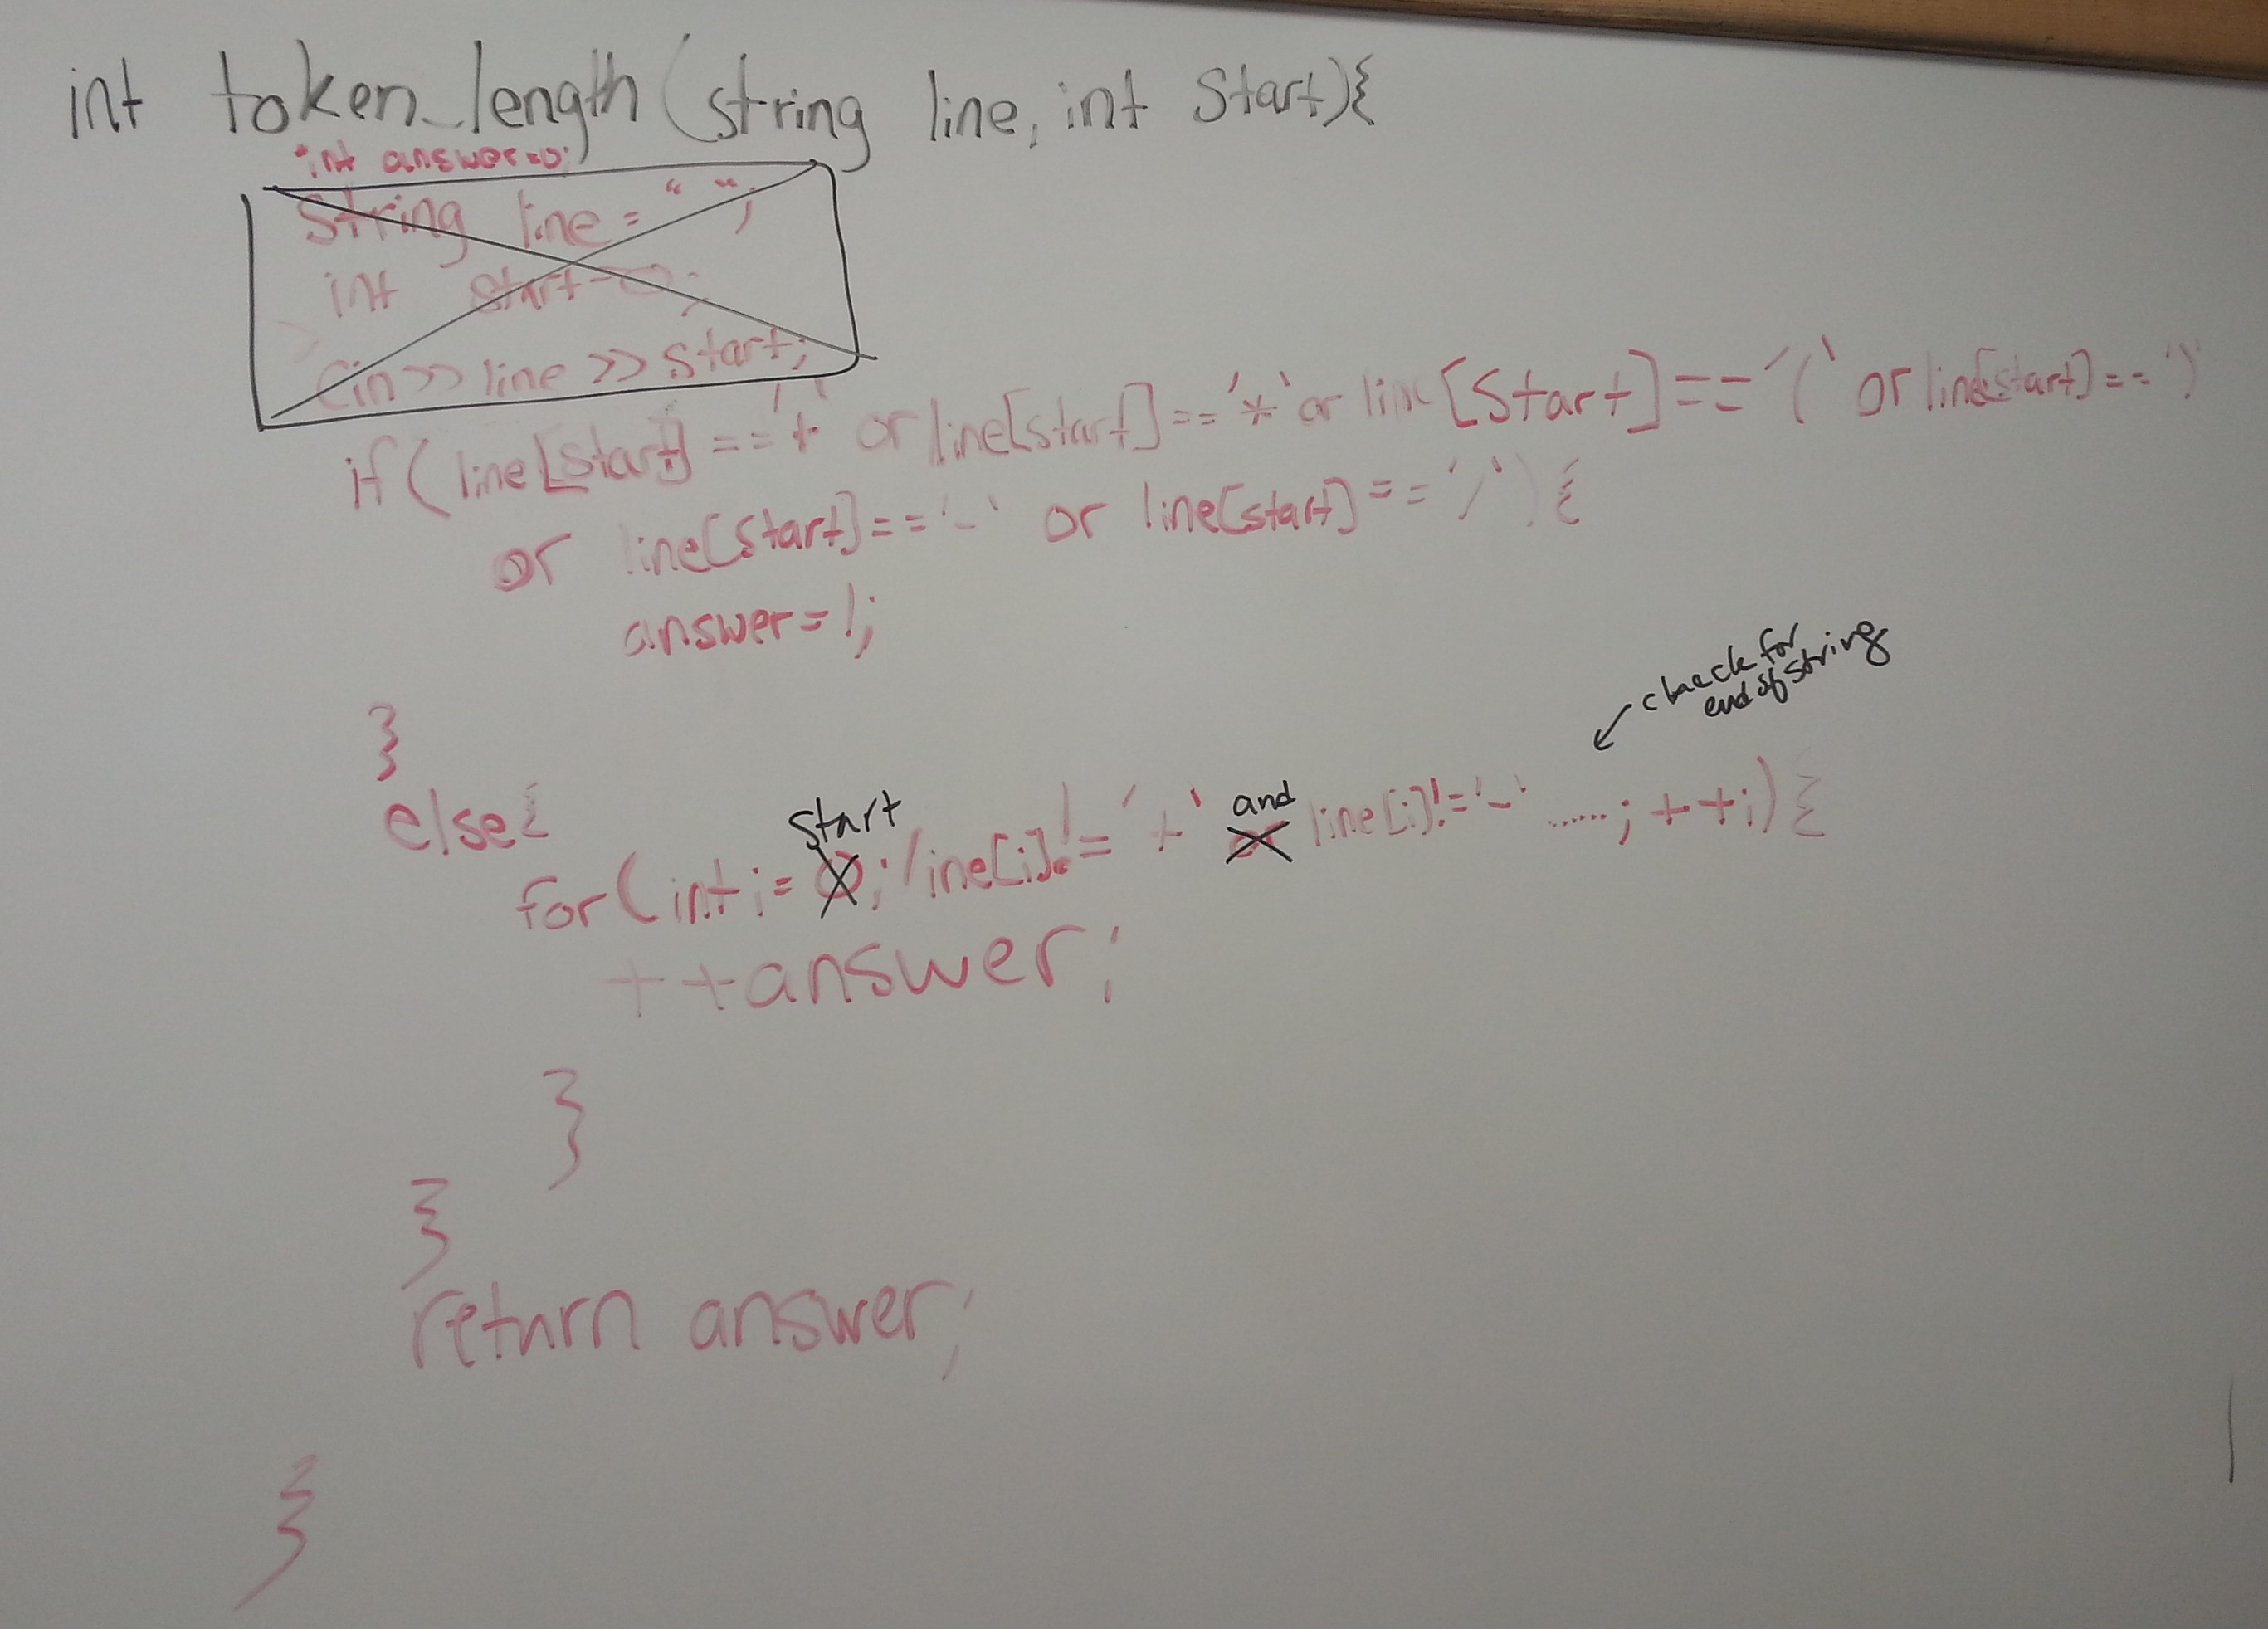 int token_length(string line, int Start){
int answer=0;
String line = " ";
int start=0;
Cin>>line>>start;
if(line[start]=='+' or line[start]=='*' or line[Start]=='(' or line[start]==')'
or line[Start]=='-' or line[start]=='/'){
answer=1;
check for
end of string
}
else{
start and
for(int i=0; line[i]!='+' line[i]!='-' ......; ++i){
++answer;
}
}
return answer;
}